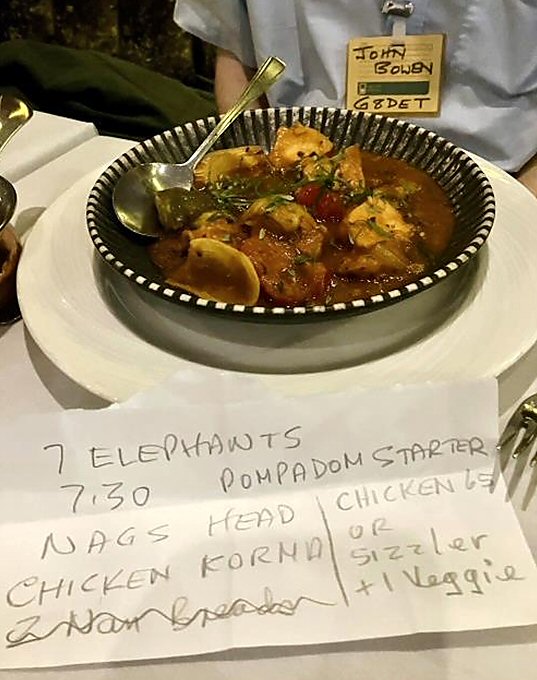 JOHN
BOWEN
G8DET
7 ELEPHANTS
7.30 POMPADOM STARTER
NAGS HEAD
CHICKEN KORMA
2 Nan Bread
CHICKEN 65
OR
SIZZLER
+1 Veggie